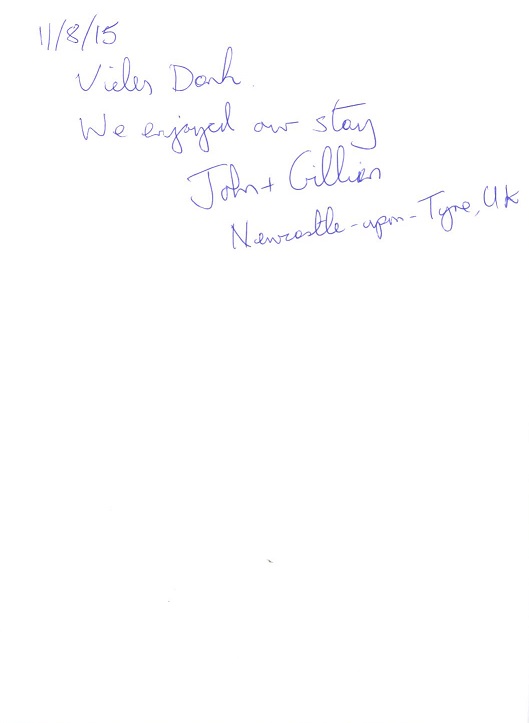 11/8/15
Vielen Dank.
We enjoyed our stay
John + Gillian
Newcastle-upon-Tyne, UK